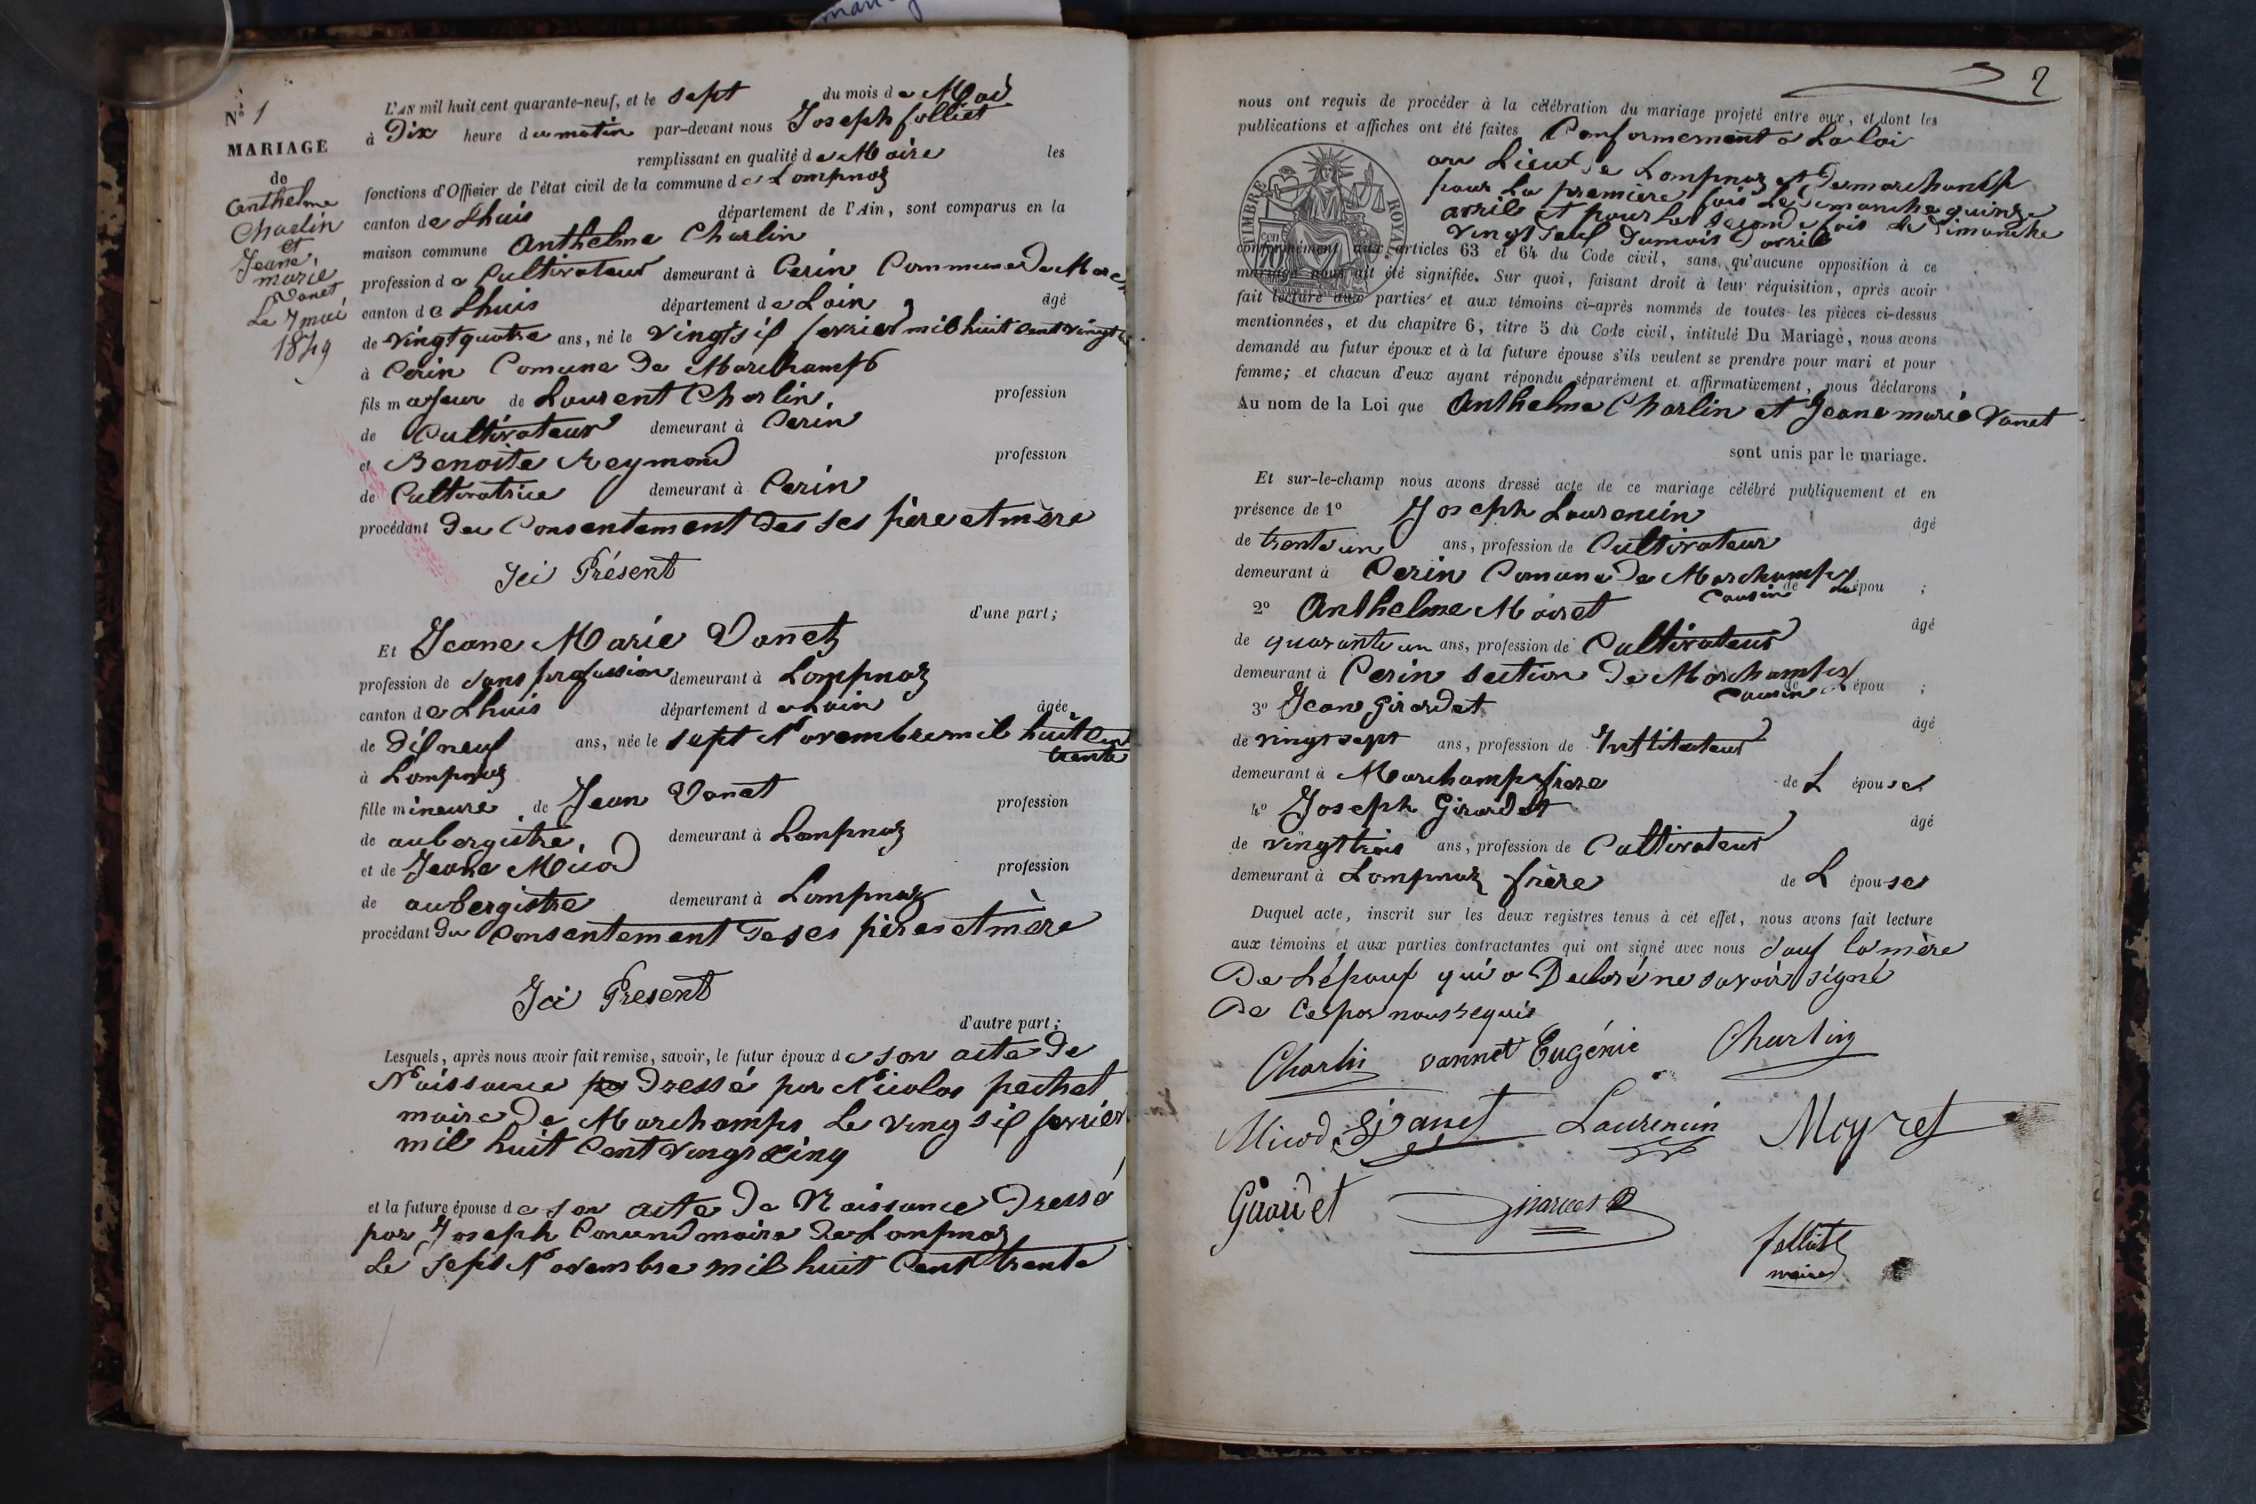 N° 1
MARIAGE
de
Anthelme
Charlin
et
Jeane
marie
Vanet
Le 7 mai
1849
L'AN mil huit cent quarante-neuf, et le sept du mois de Mai
à Dix heure du matin par-devant nous Joseph folliet
remplissant en qualité de Maire les
fonctions d'Officier de l'état civil de la commune de Lompnaz
canton de Lhuis département de l'Ain, sont comparus en la
maison commune Anthelme Charlin
profession de Cultivateur demeurant à Cerin Commune De March
canton de Lhuis département de Lain âgé
de vingt quatre ans, né le vingt sif fevrier mil huit cent vingt
à Cerin Comune De Marchamps
fils majeur de Laurent Charlin profession
de Cultivateur demeurant à Cerin
et Benoite Reymond profession
de Cultivatrice demeurant à Cerin
procédant du Consentement des ses père et mère
Jci Présent
d'une part;
Et Jeane Marie Vanet
profession de sans profession demeurant à Lompnaz
canton de Lhuis département de Lain âgée
de dif neuf ans, née le sept Novembre mil huit Cent
trente
à Lompnaz
fille mineure de Jean Vanet profession
de aubergiste demeurant à Lompnaz
et de Jeane Micod profession
de aubergiste demeurant à Lompnaz
procédant du Consentement de ses pères et mère
Jci Present
d'autre part;
Lesquels, après nous avoir fait remise, savoir, le futur époux de son acte De
Naissance Dressé par Nicolas pechet
maire De Marchamps Le ving sif fevrier
mil huit Cent vingt cinq
et la future épouse de son acte De Naissance Dressé
par Joseph maire De Lompnaz
Le Sept Novembre mil huit Cent trente
2
nous ont requis de procéder à la célébration du mariage projeté entre eux, et dont les
publications et affiches ont été faites Conformement a La loi
au Lieux de Lompnaz et De marchamp
pour La premiere fois Le Dimanche quinze
avril et pour La seconde fois le Dimanche
vingt deuf Du mois D'avril
TIMBRE ROYAL
conformément aux articles 63 et 64 du Code civil, sans qu'aucune opposition à ce
mariage nous ait été signifiée. Sur quoi, faisant droit à leur réquisition, après avoir
fait lecture aux parties et aux témoins ci-après nommés de toutes les pièces ci-dessus
mentionnées, et du chapitre 6, titre 5 du Code civil, intitulé Du Mariage, nous avons
demandé au futur époux et à la future épouse s'ils veulent se prendre pour mari et pour
femme; et chacun d'eux ayant répondu séparément et affirmativement, nous déclarons
Au nom de la Loi que Anthelme Charlin et Jeane marie Vanet
sont unis par le mariage.
Et sur-le-champ nous avons dressé acte de ce mariage célébré publiquement et en
présence de 1° Joseph Laurencin âgé
de trente un ans, profession de Cultivateur
demeurant à Cerin Comune De Marchamps Cousin de épou ;
2° Anthelme Mairet âgé
de quarante un ans, profession de Cultivateur
demeurant à Cerin section De Marchamps Cousin de épou ;
3° Jean Girardet âgé
de vingt sept ans, profession de Instituteur
demeurant à Marchamps frere de L épouse
4° Joseph Girardet âgé
de vingt trois ans, profession de Cultivateur
demeurant à Lompnaz frère de L épouse
Duquel acte, inscrit sur les deux registres tenus à cet effet, nous avons fait lecture
aux témoins et aux parties contractantes qui ont signé avec nous sauf la mère
De Lépouf qui a Declaré ne savoir signé
De Ce par nous requis
Charlin vannet Eugénie Charlin
Micod Vanet Laurencin Meyret
Girardet
folliet
maire